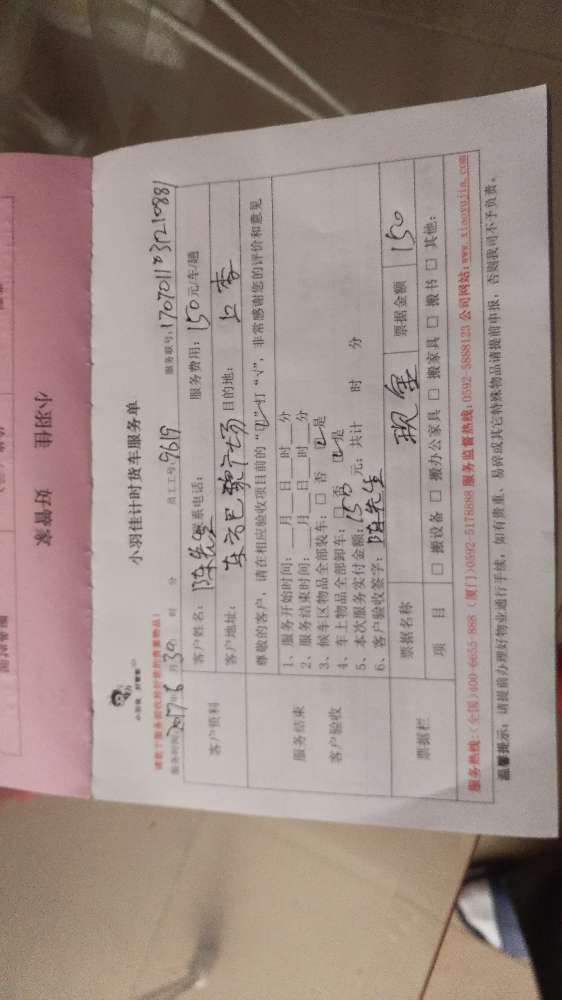 小羽佳
好管家
小羽佳计时货车服务单
员工工号: 9619
服务联号: 1707011031210881
2017 6 30
客户资料
客户姓名: 陈先生 联系电话: 服务费用: 150元/车/趟
客户地址: 东方巴黎广场 目的地:
尊敬的客户, 请在相应验收项目前的“☑”打“√”, 非常感谢您的评价和意见
服务结束
客户验收
1、服务开始时间: __月__日__时__分
2、服务结束时间: __月__日__时__分
3、候车区物品全部装车: □ 否 ☑ 是
4、车上物品全部卸车: □ 否 ☑ 是
5、本次服务实付金额: 150 元; 共计 时 分
6、客户验收签字: 陈先生
票据栏
票据名称 现金 票据金额 150
项 目 □ 搬设备 □ 搬办公家具 □ 搬家具 □ 搬书 □ 其他:
服务热线: (全国)400-6655-888 (厦门)0592-5178888 服务监督热线: 0592-5888123 公司网站: www.xiaoyujia.com
温馨提示: 请提前办理好物业进行手续, 如有贵重、易碎或其它特殊物品请提前申报, 否则我司不予负责。